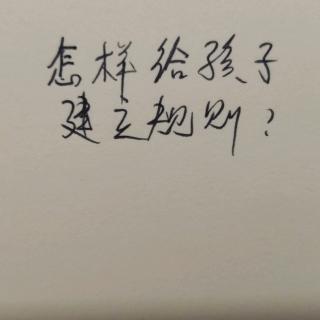 怎样给孩子
建立规则?